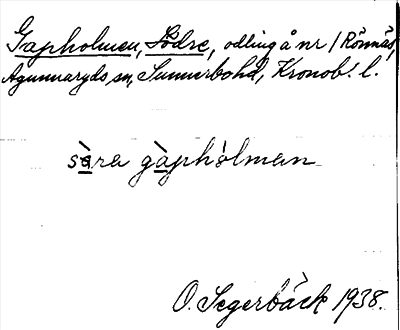 Gapholmen, Södre, odling å nr 1 Rönnäs,
Agunnaryds sn, Sunnerbohd, Kronob. l.
sə̀ra gàphòlmen
O. Segerbäck 1938.